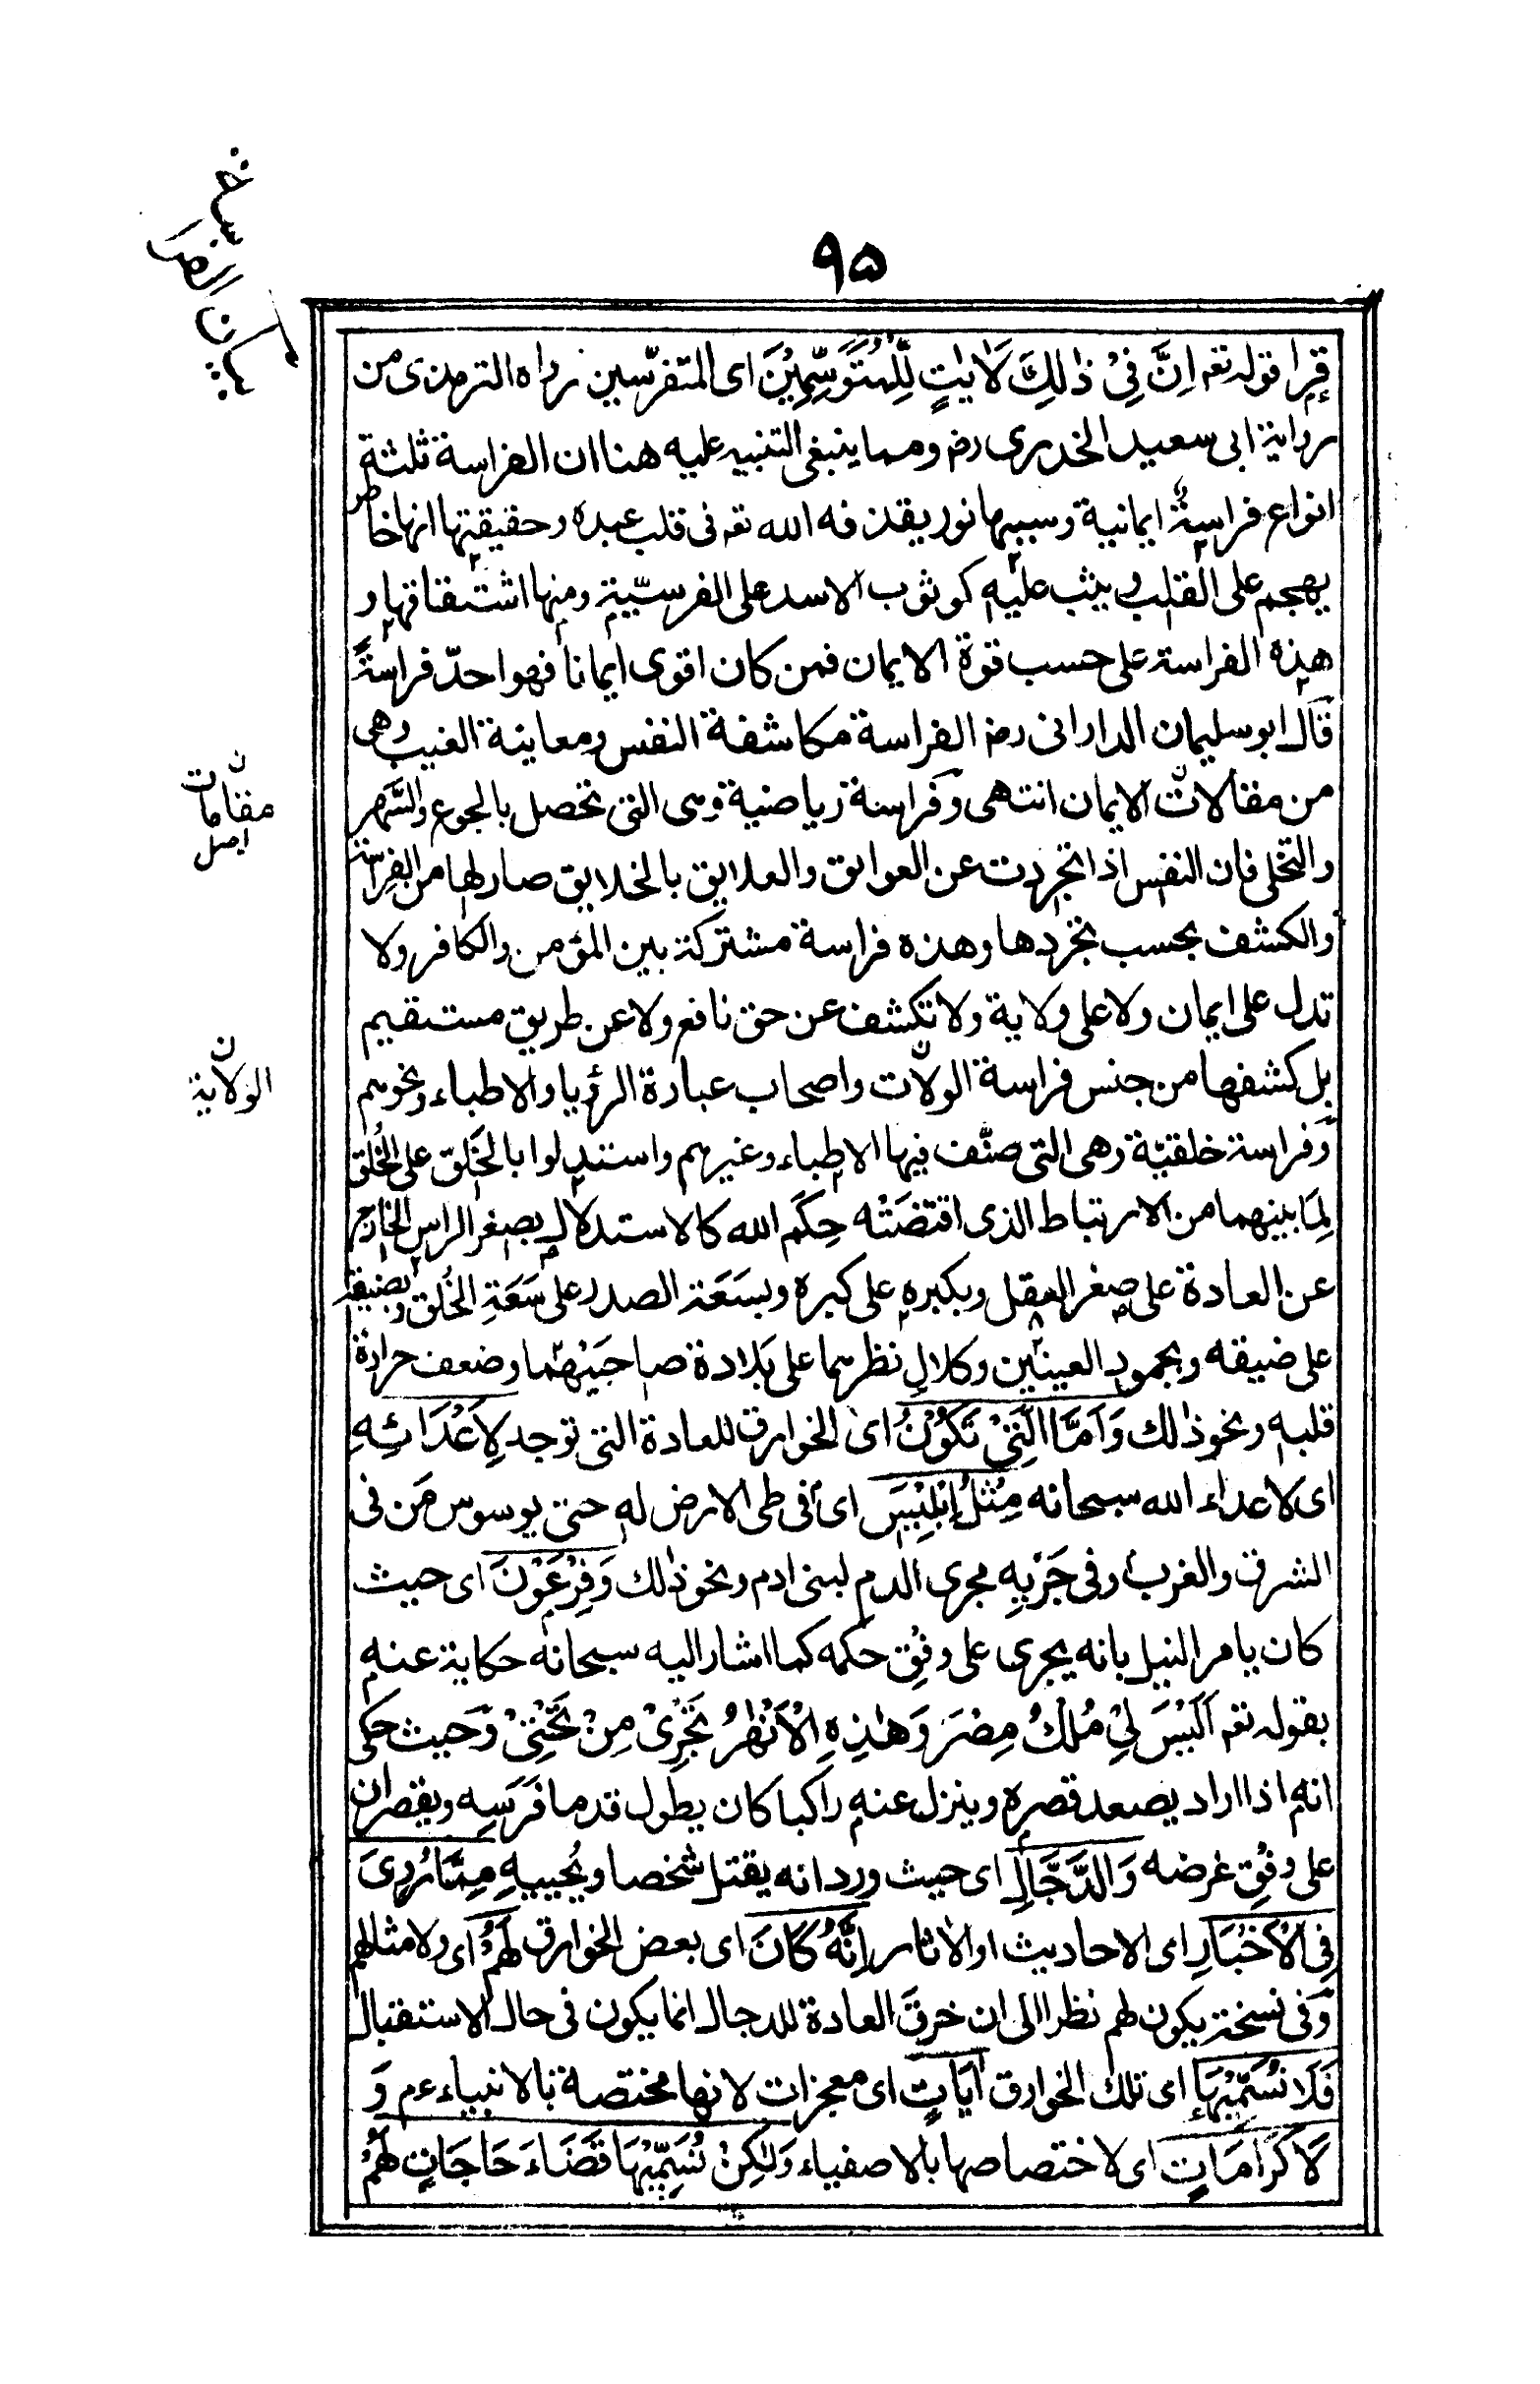 ٩٥
بيان الفراسة
قرا قوله تعم اِنَّ فِیْ ذٰلِكَ لَاٰیٰتٍ لِّلْمُتَوَسِّمِیْنَ ای المتفرّسین رواه الترمذی من
روایة ابی سعید الخدری رضہ ومما ینبغی التنبیه علیه هنا ان الفراسة ثلثة
انواع فراسةٌ ایمانیة وسببها نور یقذفه الله تعم فی قلب عبده وحقیقتها انها خاطر
یهجم علی القلب و یثب علیه كوثوب الاسد علی الفرسیّة ومنها اشتقاقها و
هذه الفراسة علی حسب قوة الایمان فمن كان اقوی ایمانا فهو احدّ فراسةً
قَالَ ابو سلیمان الدارانی رضہ الفراسة مكاشفة النفس ومعاینة الغیب وهی
من مقالات الایمان انتهی وَفراسة ریاضیة وهی التی تحصل بالجوع والسَّهر
والتخلی فان النفس اذا تجردت عن العوایق والعلایق بالخلایق صار لها من الفراسة
والكشف بحسب تجردها وهذه فراسة مشتركة بین المؤمن والكافر ولا
تدل علی ایمان ولا علی ولایة ولا تكشف عن حق نافع ولا عن طریق مستقیم
بل كشفها من جنس فراسة الولات واصحاب عبارة الرؤیا والاطباء ونحوهم
وَفراسة خلقیّة وهی التی صنّف فیها الاطباء وغیرهم واستدلوا بالخَلق علی الخُلق
لِمَا بینهما من الارتباط الذی اقتضَتْه حِكَم الله كالاستدلال بصغر الراس الخارج
عن العادة علی صغر العقل وبكبره علی كبره وبسَعَة الصدر علی سَعَةِ الخُلق وبضیقه
علی ضیقه وبجمود العینین وكلال نظرهما علی بَلادة صاحبَیْهِما وضعف حرارة
قلبه ونحو ذٰلك وَاَمَّا الَّتِیْ تَكُوْنُ ای الخوارق للعادة التی توجد لِاَعْدَائِهِ
ای لاعداء الله سبحانه مِثْلُ اِبْلِیْسَ ای فی طی الارض له حتی یوسوس مَن فی
الشرق والغرب وفی جَرْیِهِ مجری الدم لبنی ادم ونحو ذٰلك وَفِرْعَوْنَ ای حیث
كان یامر النیل بانه یجری علی وفق حكمه كما اشار الیه سبحانه حكایة عنه
بقوله تعم اَلَیْسَ لِیْ مُلْكُ مِصْرَ وَهٰذِهِ الْاَنْهٰرُ تَجْرِیْ مِنْ تَحْتِیْ وَحیث حكی
انه اذا اراد یصعد قصره وینزل عنه راكبا كان یطول قدما فَرَسِه ویقصران
علی وفق غرضه وَالدَّجَّالِ ای حیث ورد انه یقتل شخصا ویُحییهِ مِمَّا رُوِیَ
فِی الْاَخْبَارِ ای الاحادیث او الاثار اِنَّهُ كَانَ ای بعض الخوارق لَهُمْ ای ولامثالهم
وَفی نسخة یكون لهم نظرا الی ان خرقَ العادة للدجال انما یكون فی حال الاستقبال
فَلَا نُسَمِّیْهَا ای تلك الخوارق آیَاتٍ ای معجزات لانها مختصة بالانبیاء عم وَ
لَا كَرَامَاتٍ ای لاختصاصها بالاصفیاء وَلٰكِنْ نُسَمِّیْهَا قَضَاءَ حَاجَاتٍ لَهُمْ
ن
مقامات
اصل
ن
الولایة